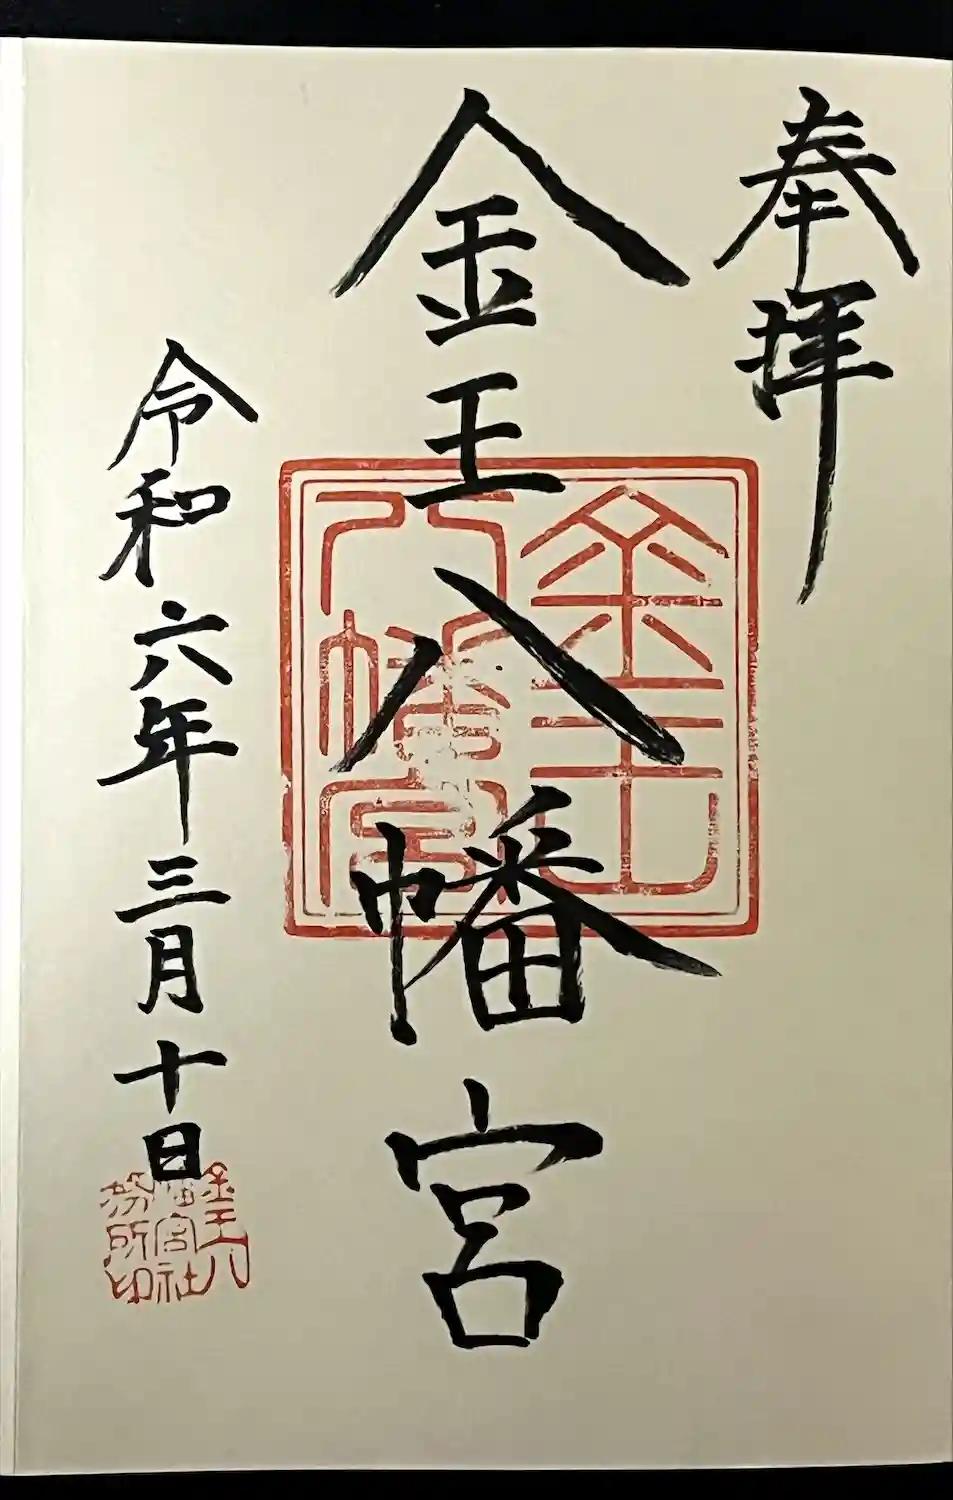 奉拝
金王八幡宮
金王
八幡宮
令和六年三月十日
金王八
幡宮社
務所印